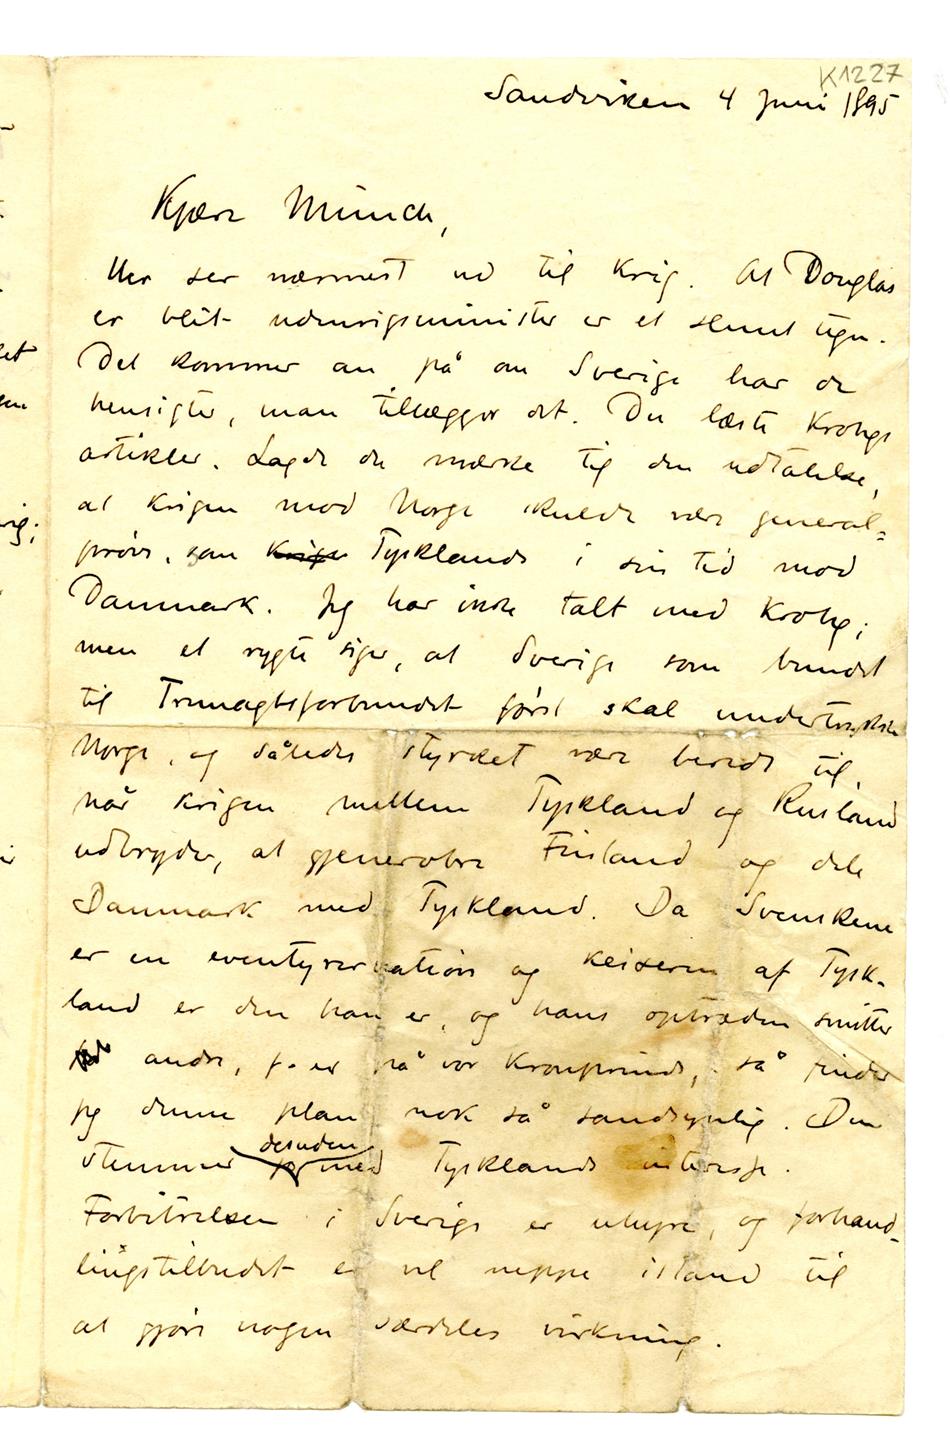 K1227
Sandviken 4 Juni 1895
Kjære Munch,
Her ser nærmest ud til krig. At Douglas
er blit udenrigsminister er et slemt tegn.
Det kommer an på om Sverige har de
hensigter, man tillægger det. Du læste Krohgs
artikler. Lagde du mærke til den udtalelse,
at krigen mod Norge skulde være general-
prøve, som Krige Tysklands i sin tid mod
Danmark. Jeg har ikke talt med Krohg;
men et rygte siger, at Sverige som bundet
til Tremagtsforbundet først skal undertrykke
Norge, og således styrket være beredt til,
når krigen mellem Tyskland og Rusland
udbryder, at generobre Finland og dele
Danmark med Tyskland. Da Svenskene
er en eventyrernation og keiseren af Tysk-
land er den han er, og hans optræden smitter
andre, f. ex på vor kronprinds, så finder
jeg denne plan nok så sandsynlig. Den
desuden
stemmer med Tysklands interesse.
Forbitrelsen i Sverige er uhyre, og forhand-
lingstilbudet er vel neppe istand til
at gjøre nogen særdeles virkning.